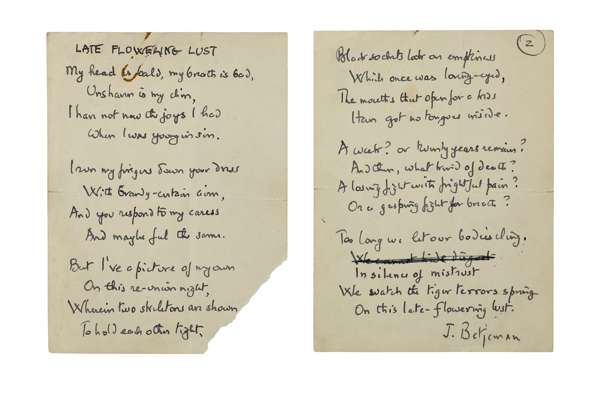 LATE FLOWERING LUST
My head is bald, my breath is bad,
Unshaven is my chin,
I have not now the joys I had
When I was young in sin.
I run my fingers down your dress
With brandy-certain aim,
And you respond to my caress
And maybe feel the same.
But I've a picture of my own
On this re-union night,
Wherein two skeletons are shewn
To hold each other tight,
2
Black sockets look on emptiness
Which once was loving-eyed,
The mouth that opens for a kiss
Has got no tongue inside.
A week? or twenty years remain?
And then, what kind of death?
A losing fight with frightful pain?
Or a gasping fight for breath?
Too long we let our bodies cling,
We cannot hide disgust
In silence of mistrust
We watch the tiger terrors spring
On this late-flowering lust.
J. Betjeman